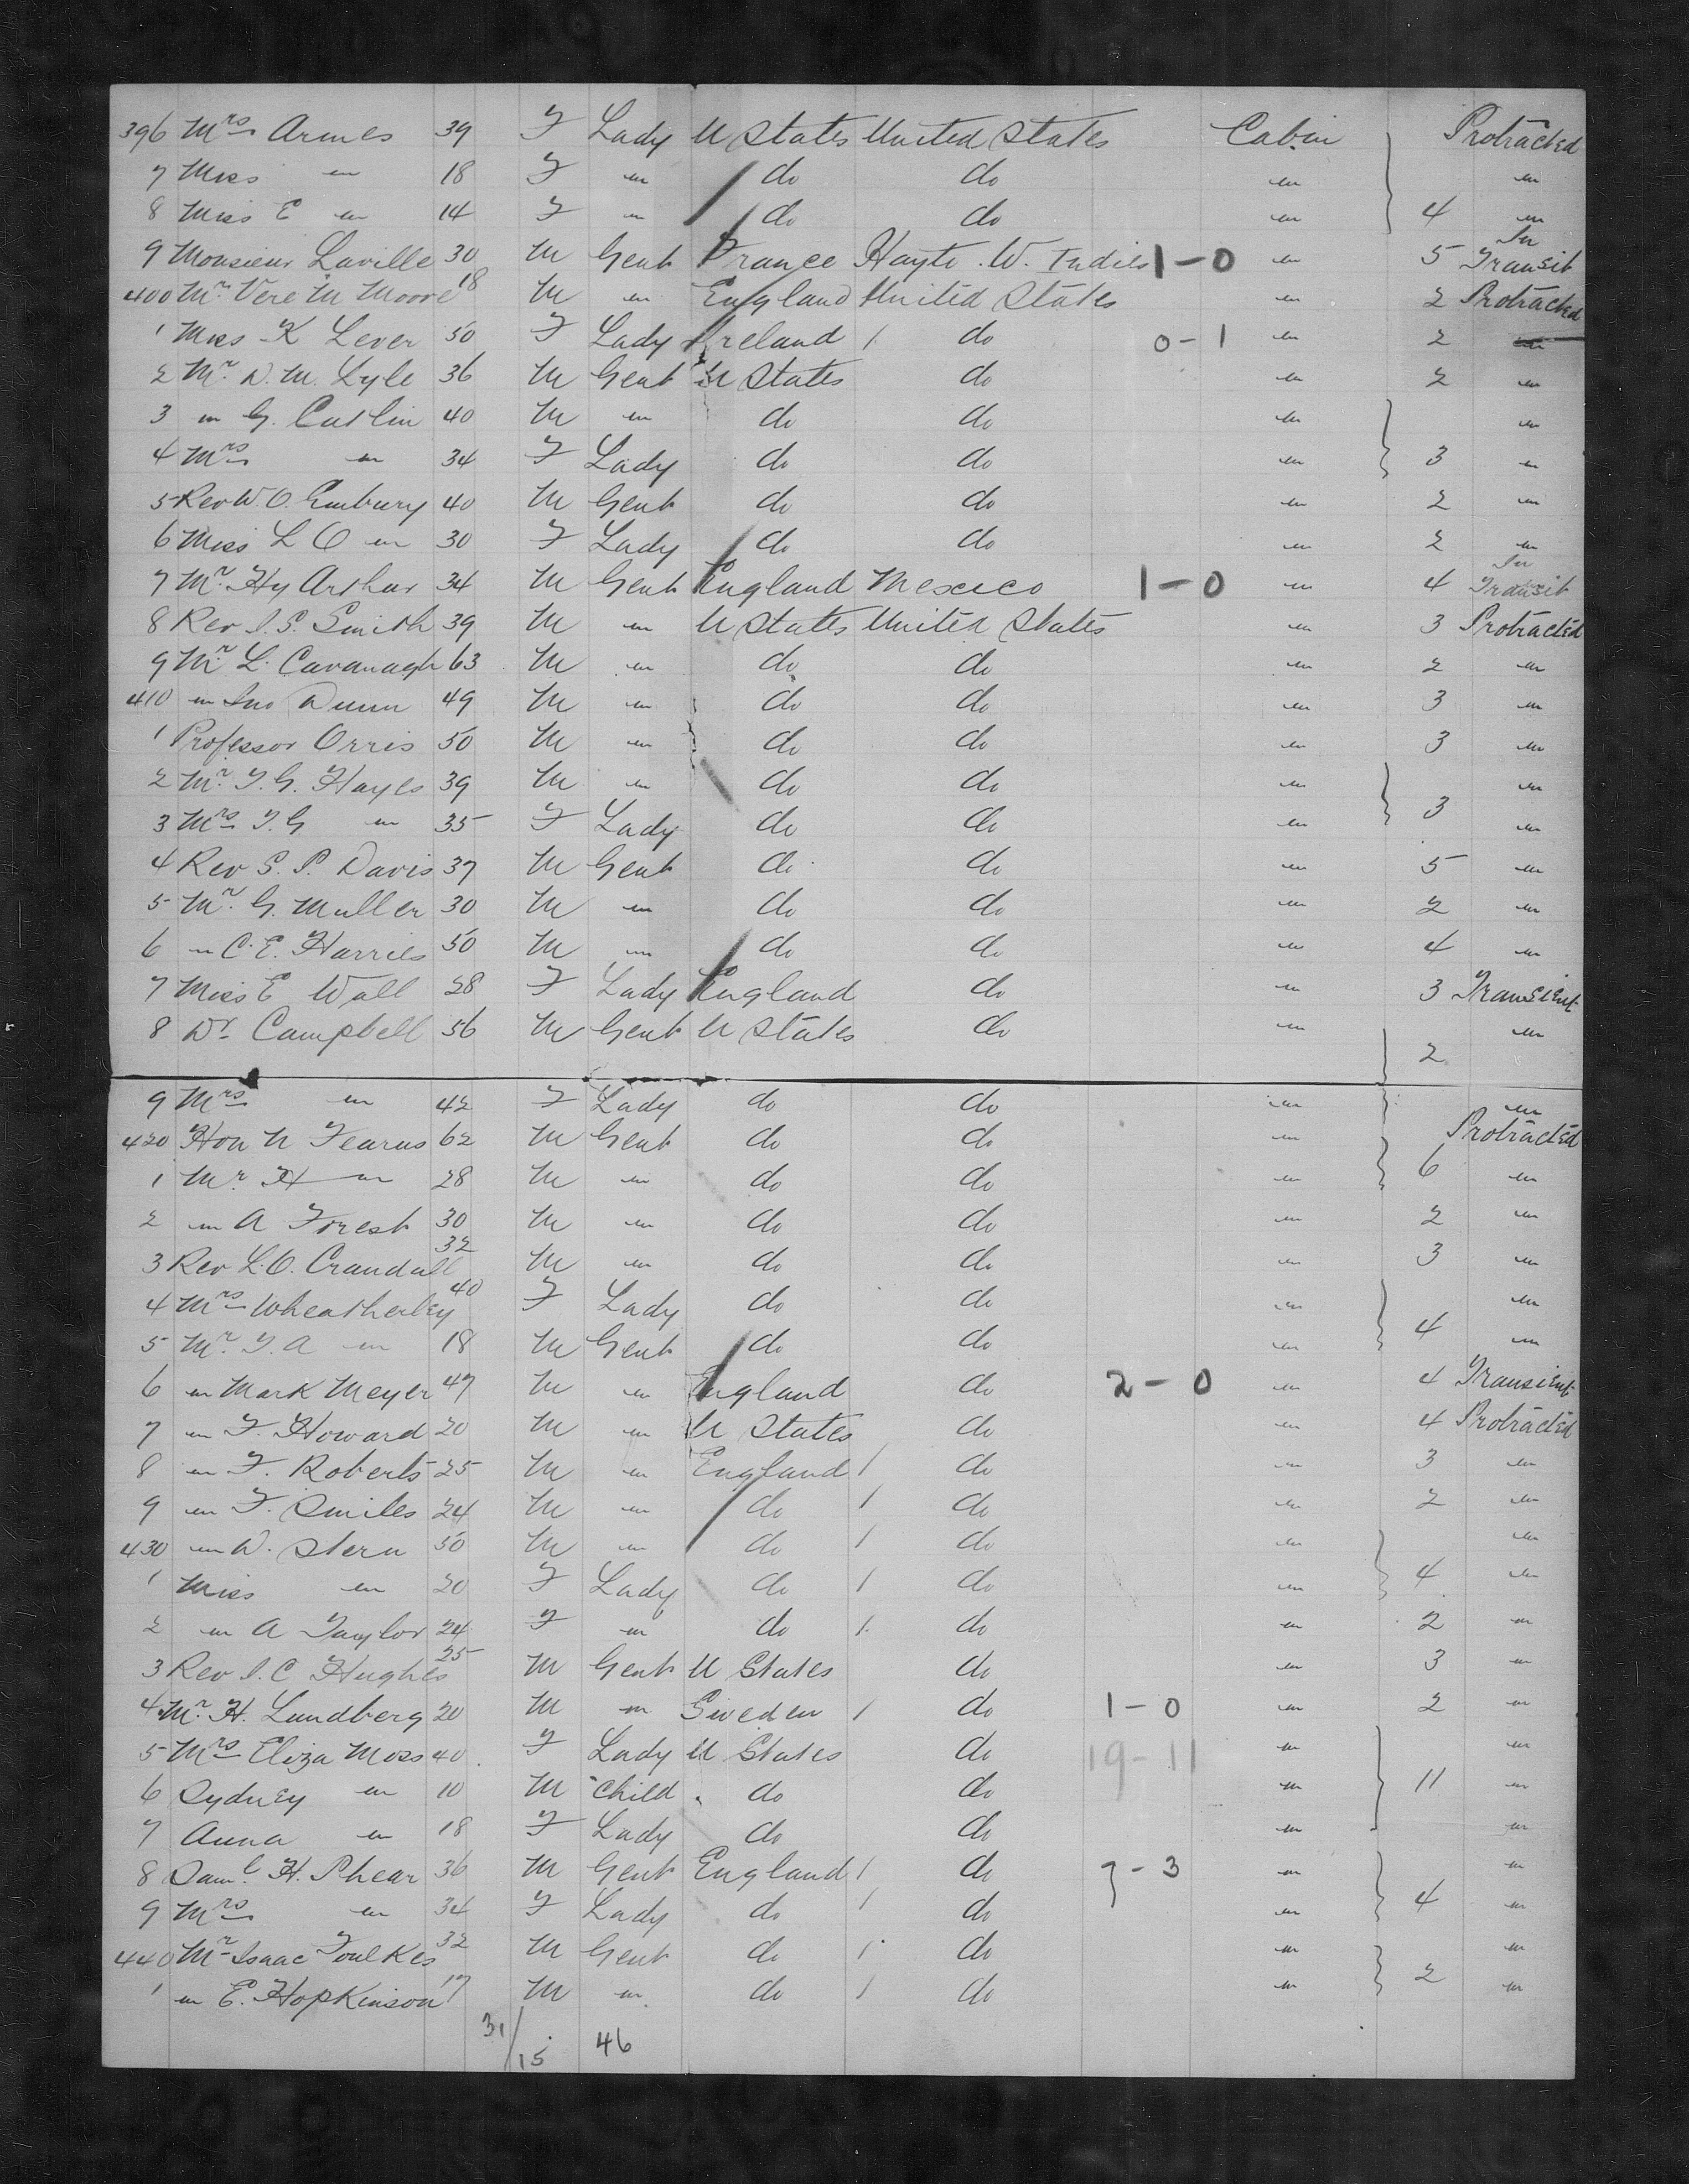 396 Mrs Armes 39 F Lady U States United States Cabin Protracted
7 Miss " 18 F " do do " "
8 Miss E " 14 F " do do " 4 "
9 Monsieur Laville 30 M Gent France Hayte W. Indies 1-0 " 5 In Transit
400 Mr Vere M Moore 18 M " England United States " 2 Protracted
1 Miss K Lever 50 F Lady Ireland 1 do 0-1 " 2 "
2 Mr D. M. Lyle 36 M Gent U States do " 2 "
3 " G. Catlin 40 M " do do " "
4 Mrs " 34 F Lady do do " 3 "
5 Rev W. O. Embury 40 M Gent do do " 2 "
6 Miss L O " 30 F Lady do do " 2 "
7 Mr Hy Arthur 34 M Gent England Mexico 1-0 " 4 In Transit
8 Rev I. S. Smith 39 M " U States United States " 3 Protracted
9 Mr L. Cavanagh 63 M " do do " 2 "
410 " Jno Dunn 49 M " do do " 3 "
1 Professor Orris 50 M " do do " 3 "
2 Mr T. G. Hayes 39 M " do do " "
3 Mrs T. G " 35 F Lady do do " 3 "
4 Rev S. P. Davis 37 M Gent do do " 5 "
5 Mr G. Muller 30 M " do do " 2 "
6 " C. E. Harries 50 M " do do " 4 "
7 Miss E Wall 28 F Lady England do " 3 Transient
8 Dr Campbell 56 M Gent U States do " 2 "
9 Mrs " 42 F Lady do do " "
420 Hon N Fearns 62 M Gent do do " Protracted
1 Mr H " 28 M " do do " 6 "
2 " A Forest 30 M " do do " 2 "
3 Rev L. O. Crandall 32 M " do do " 3 "
4 Mrs Wheatherley 40 F Lady do do " "
5 Mr T. A " 18 M Gent do do " 4 "
6 " Mark Meyer 47 M " England do 2-0 " 4 Transient
7 " F. Howard 20 M " U States do " 4 Protracted
8 " F. Roberts 25 M " England 1 do " 3 "
9 " F. Smiles 24 M " do 1 do " 2 "
430 " D. Stern 50 M " do 1 do " "
1 Miss " 20 F Lady do 1 do " 4 "
2 " A Taylor 24 F " do 1 do " 2 "
3 Rev I. C Hughes 25 M Gent U States do " 3 "
4 Mr H. Lundberg 20 M " Sweden 1 do 1-0 " 2 "
5 Mrs Eliza Moss 40 F Lady U States do 19-11 " "
6 Sydney " 10 M Child do do " 11 "
7 Anna " 18 F Lady do do " "
8 Saml H. Phear 36 M Gent England 1 do 7-3 " "
9 Mrs " 34 F Lady do 1 do " 4 "
440 Mr Isaac Foulkes 32 M Gent do 1 do " "
1 " E. Hopkinson 17 M " do 1 do " 2 "
31/15 46